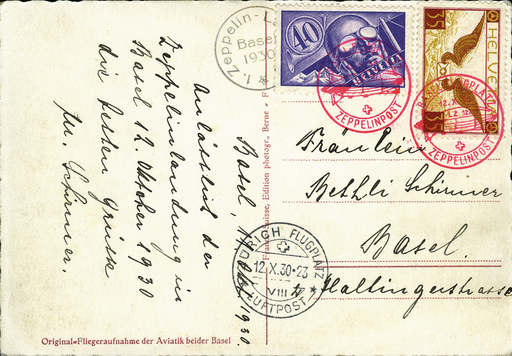 Anlässlich der
Zeppelinlandung in
Basel 12. Oktober 1930
die besten Grüsse
Schirmer.
Basel, 1930.
1. Zeppelin-L
Basel
1930
40
HELVETIA
35
HELVETIA
35
ZEPPELINPOST
BASEL FLUGPLATZ
12.X.
ZEPPELINPOST
Fräulein
Bethli Schirmer
Basel.
Hallingerstrasse
ZÜRICH FLUGPLATZ
12.X.30-23
VIII
LUFTPOST
Edition photogr., Berne
Original-Fliegeraufnahme der Aviatik beider Basel